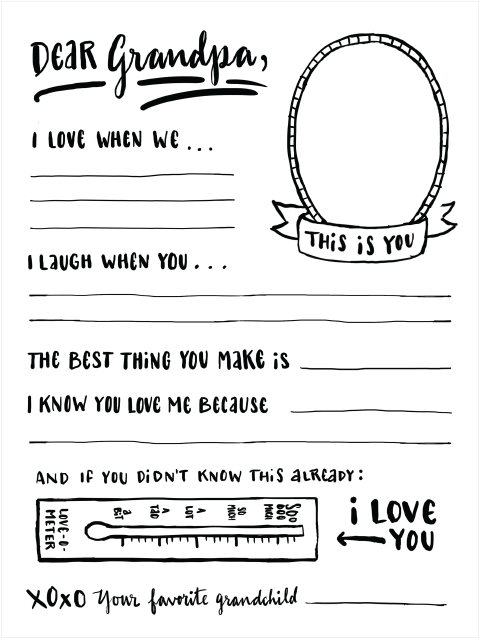 DEAR Grandpa,
I LOVE WHEN WE ...
THIS IS YOU
I LAUGH WHEN YOU ...
THE BEST THING YOU MAKE IS
I KNOW YOU LOVE ME BECAUSE
AND IF YOU DIDN'T KNOW THIS ALREADY:
LOVE-O-
METER
A BIT
A TAD
A LOT
SO MUCH
SOO OOO MUCH
i LOVE
YOU
XOXO Your favorite grandchild